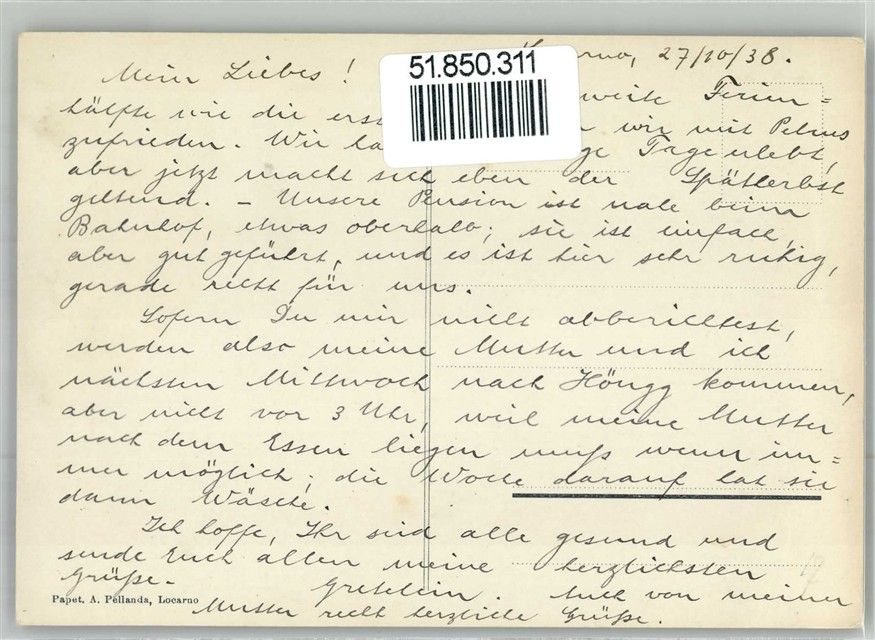 51.850.311
27/10/38.
Mein Liebes! weite Ferien=
hälfte wie die erst wir mit Petrus
zufrieden. Wir ha ge Tage erlebt,
aber jetzt macht sich eben der Spätherbst
geltend. – Unsere Pension ist nahe beim
Bahnhof, etwas oberhalb; sie ist einfach,
aber gut geführt, und es ist hier sehr ruhig,
gerade recht für uns.
Sofern Du mir nicht abberichtest,
werden also meine Mutter und ich
nächsten Mittwoch nach Höngg kommen,
aber nicht vor 3 Uhr, weil meine Mutter
nach dem Essen liegen muß wenn im=
mer möglich; die Woche darauf hat sie
dann Wäsche.
Ich hoffe, Ihr seid alle gesund und
sende Euch allen meine herzlichsten
Grüße.
Gretelein. Auch von meiner
Mutter recht herzliche Grüße.
Papet. A. Pellanda, Locarno